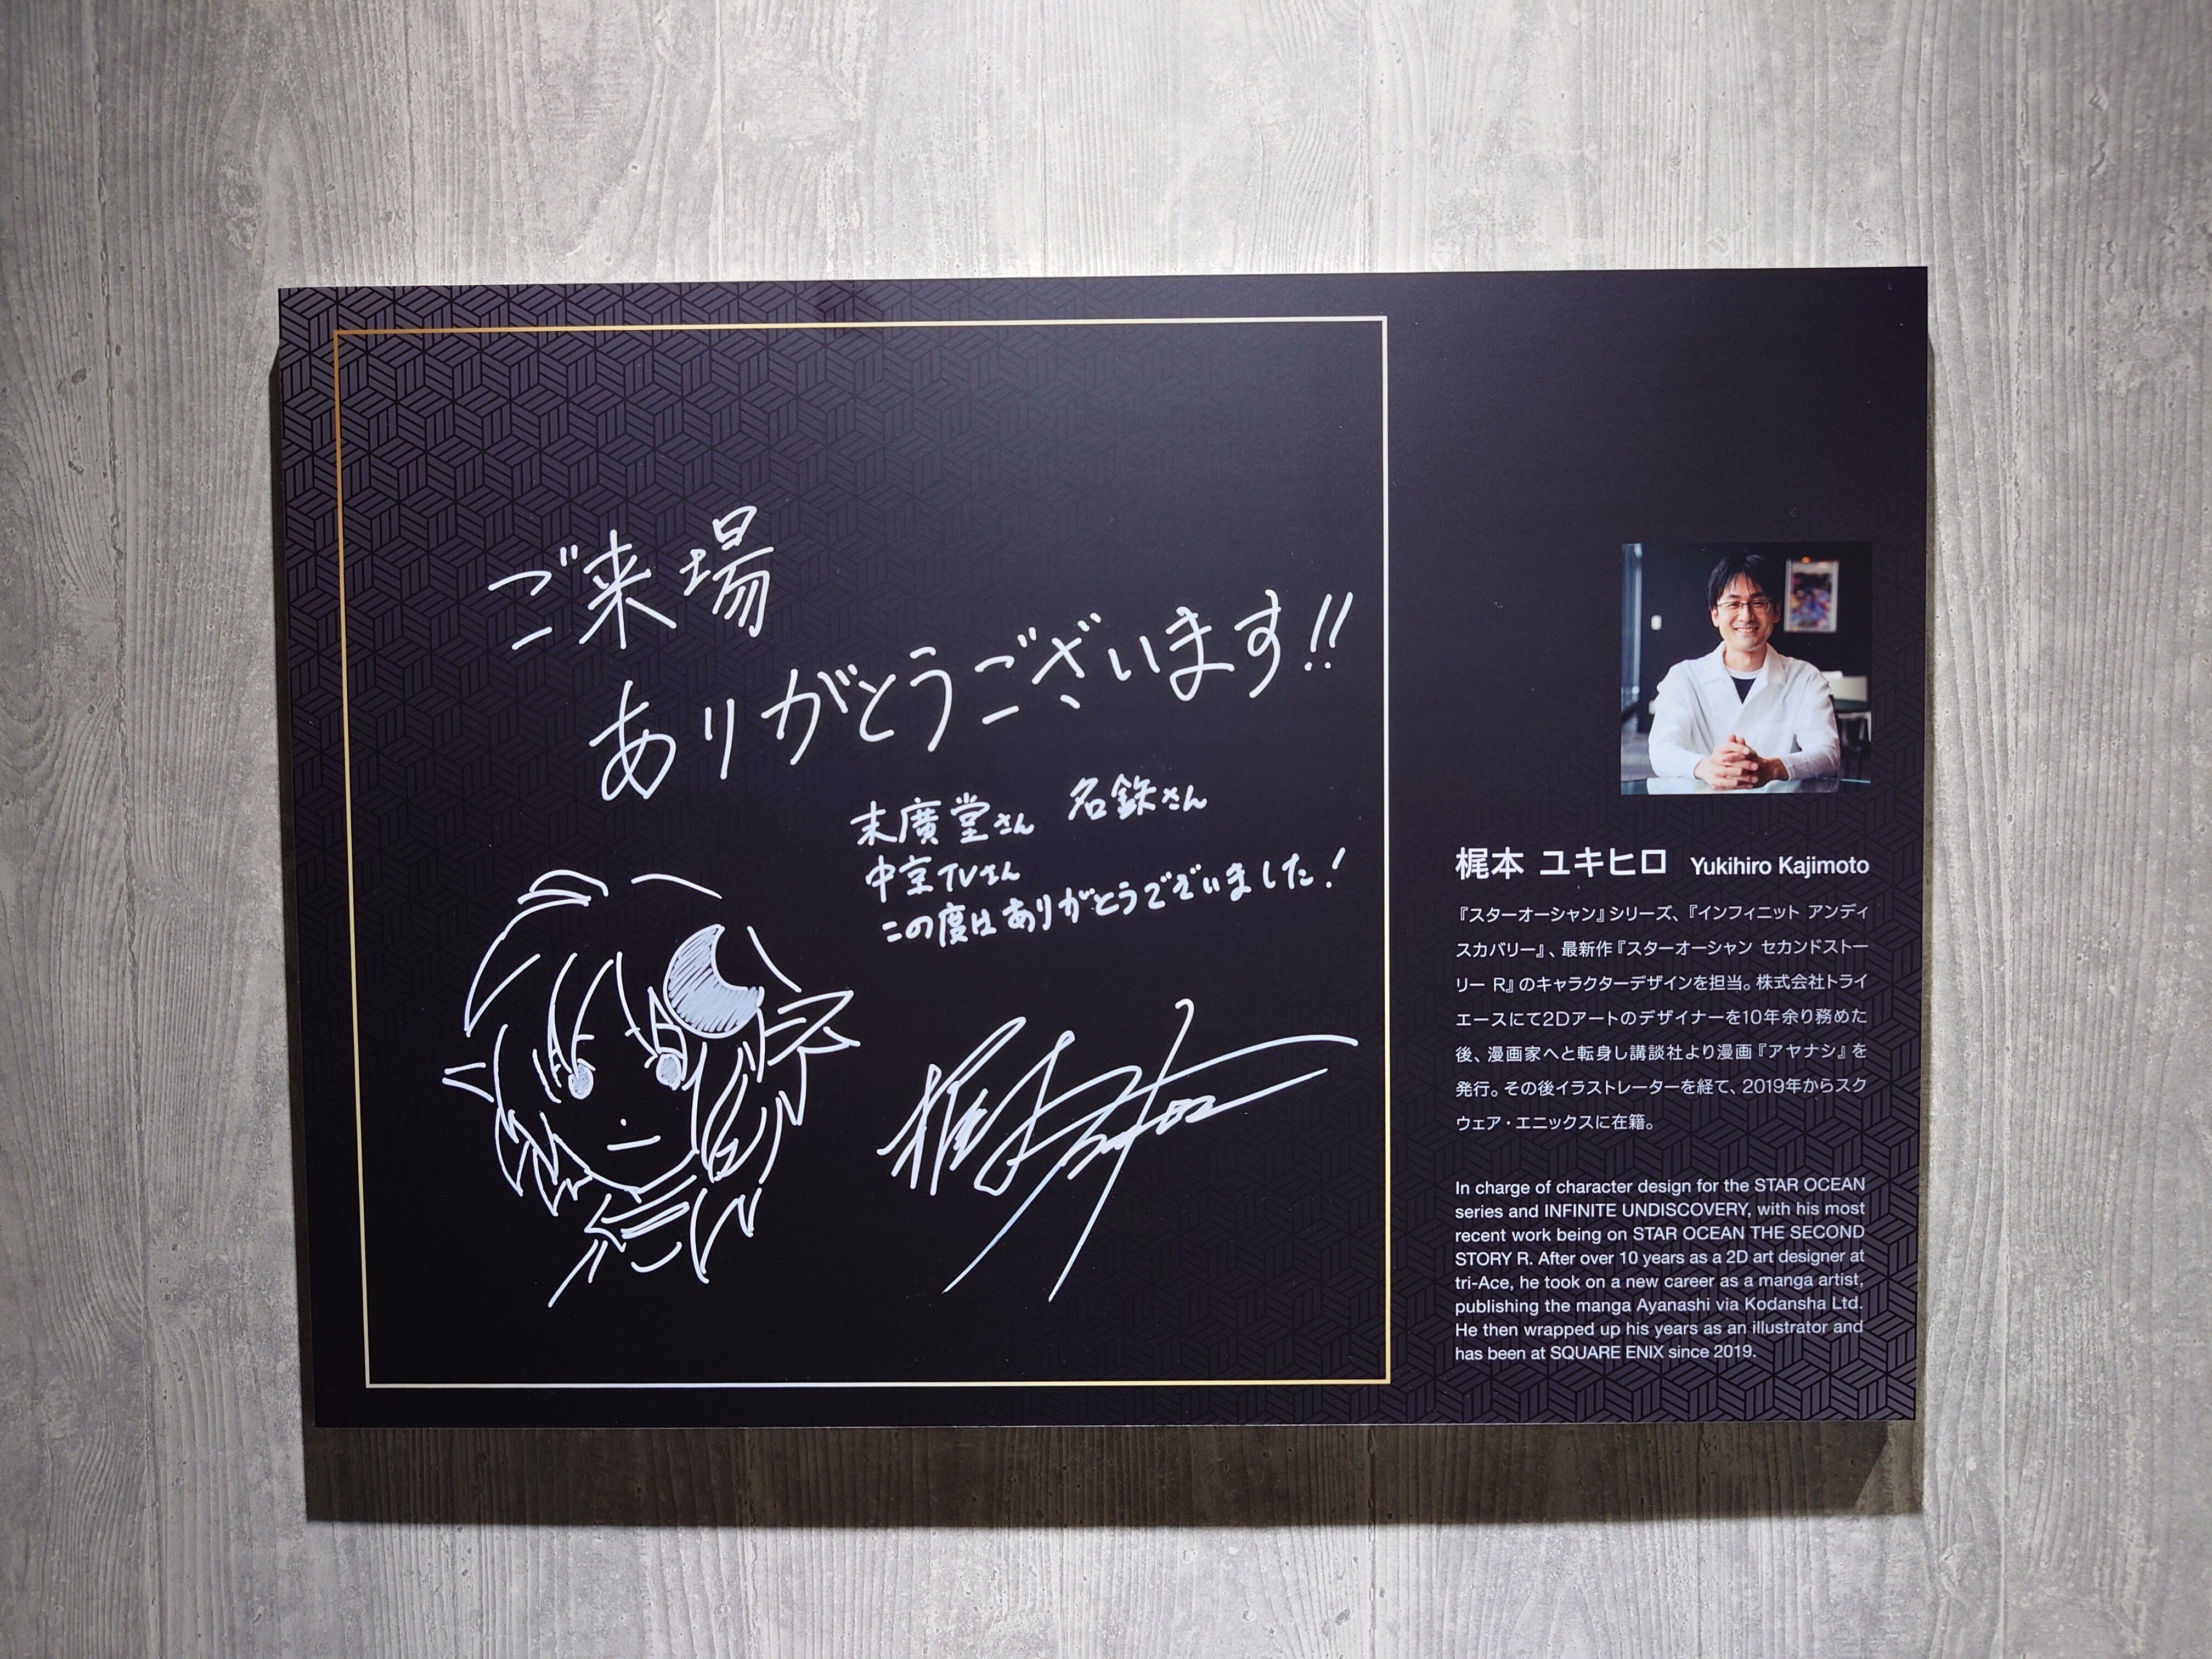 ご来場
ありがとうございます!!
末廣堂さん 名鉄さん
中京TVさん
この度はありがとうございました!
梶本 ユキヒロ Yukihiro Kajimoto
『スターオーシャン』シリーズ、『インフィニット アンディ
スカバリー』、最新作『スターオーシャン セカンドストー
リー R』のキャラクターデザインを担当。株式会社トライ
エースにて2Dアートのデザイナーを10年余り務めた
後、漫画家へと転身し講談社より漫画『アヤナシ』を
発行。その後イラストレーターを経て、2019年からスク
ウェア・エニックスに在籍。
In charge of character design for the STAR OCEAN
series and INFINITE UNDISCOVERY, with his most
recent work being on STAR OCEAN THE SECOND
STORY R. After over 10 years as a 2D art designer at
tri-Ace, he took on a new career as a manga artist,
publishing the manga Ayanashi via Kodansha Ltd.
He then wrapped up his years as an illustrator and
has been at SQUARE ENIX since 2019.